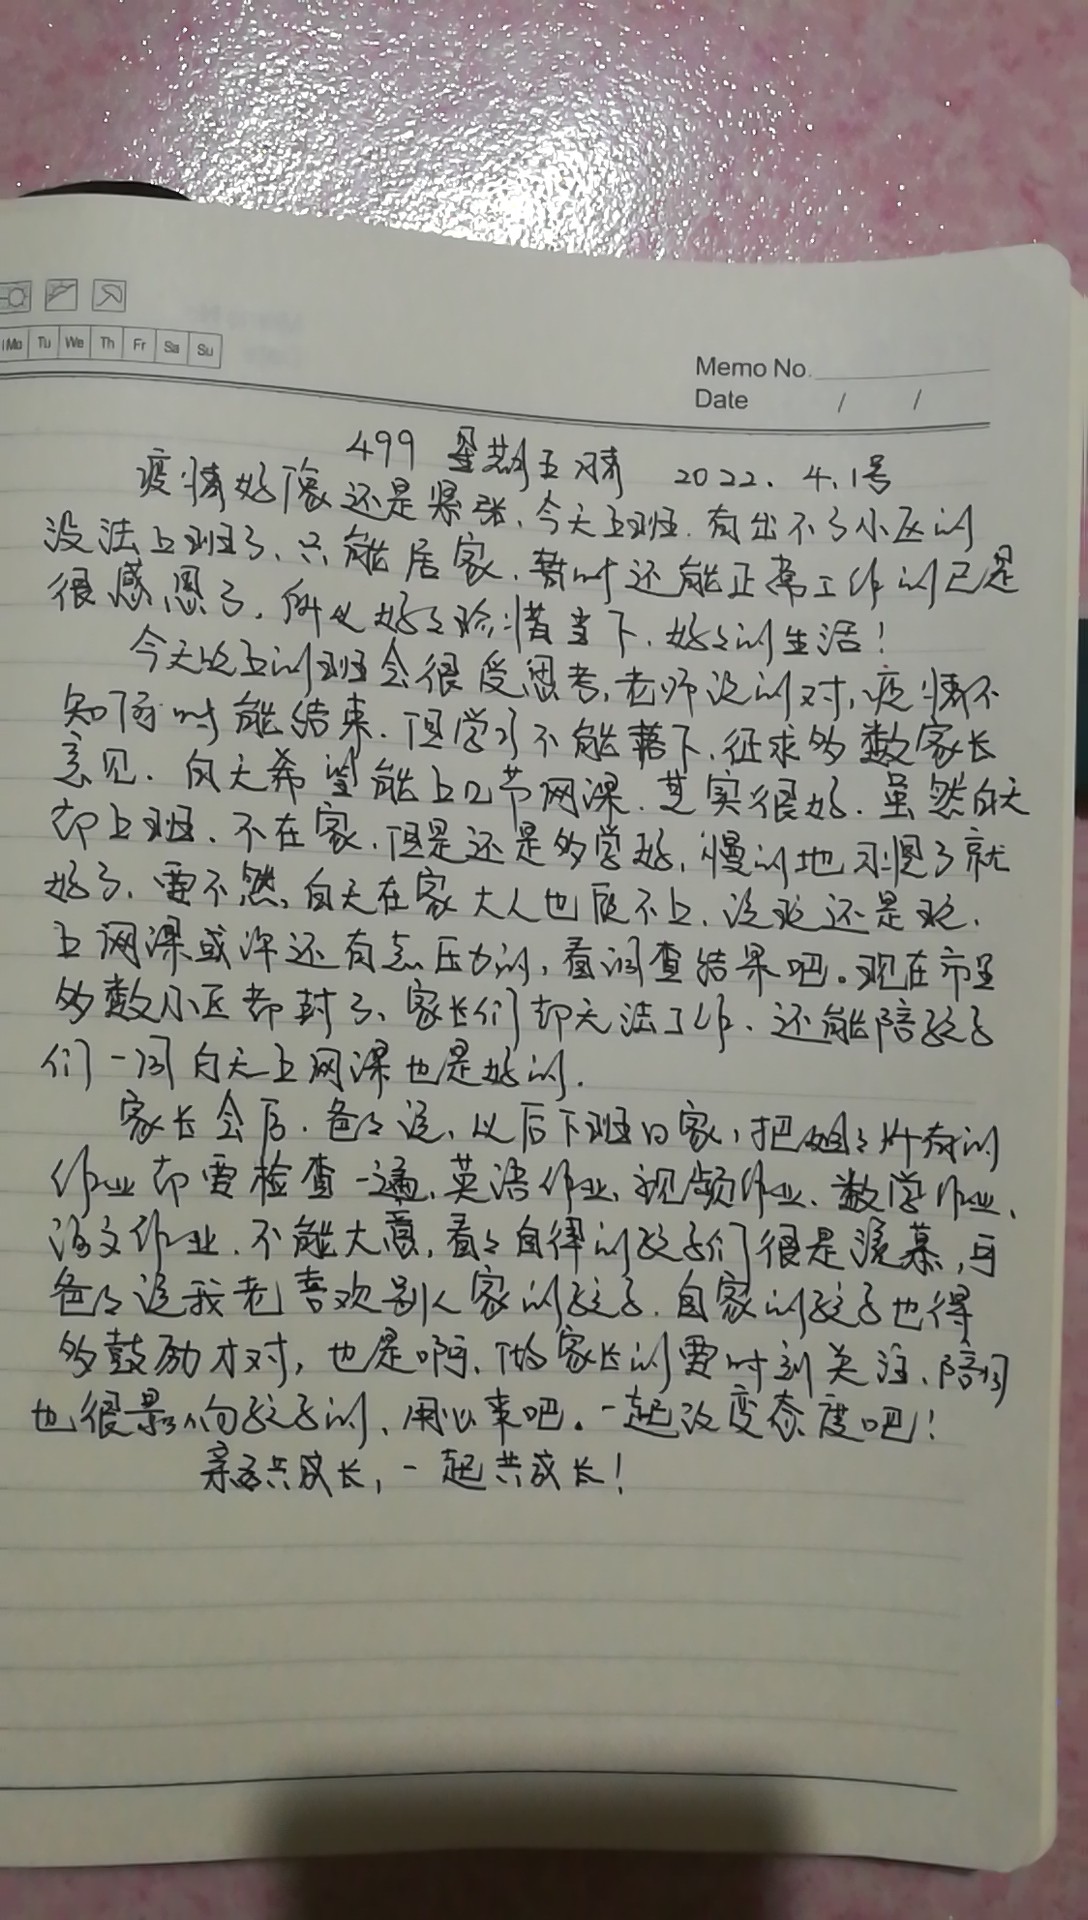 Mo Tu We Th Fr Sa Su
Memo No.
Date / /
499 星期五 晴 2022.4.1号
疫情好像还是紧张.今天上班.有出不了小区的
没法上班了、只能居家.暂时还能正常工作的已是
很感恩了.所以好好珍惜当下.好好的生活!
今天晚上的班会很受思考,老师说的对,疫情不
知何时能结束.但学习不能落下.征求多数家长
意见.白天希望能上几节网课.其实很好.虽然白天
都上班.不在家.但是还是多学好,慢的地习惯了就
好了.要不然,白天在家大人也顾不上.说玩还是玩.
上网课或许还有点压力的,看调查结果吧。现在市里
多数小区都封了、家长们都无法工作、还能陪孩子
们一同白天上网课也是好的.
家长会后.爸爸说、以后下班回家,把姐姐所有的
作业都要检查一遍、英语作业、视频作业、数学作业、
语文作业.不能大意,看看自律的孩子们很是羡慕,可
爸爸说我老喜欢别人家的孩子.自家的孩子也得
多鼓励才对,也是啊、做家长的要时刻关注、陪伴
也很影响孩子的、用心来吧。一起改变态度吧!
亲子共成长,一起共成长!